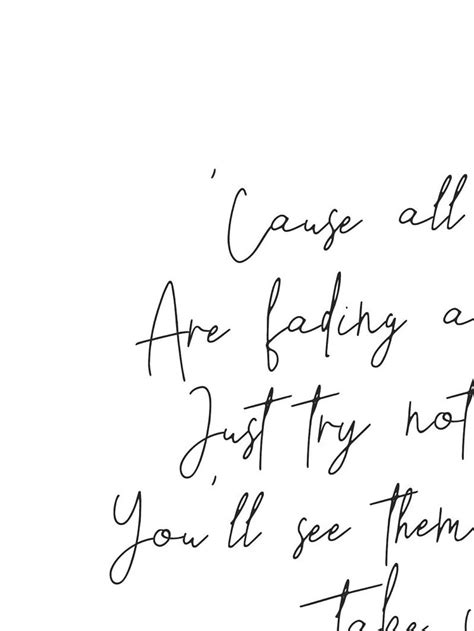 'Cause all
Are fading a
Just try not
You'll see them
take